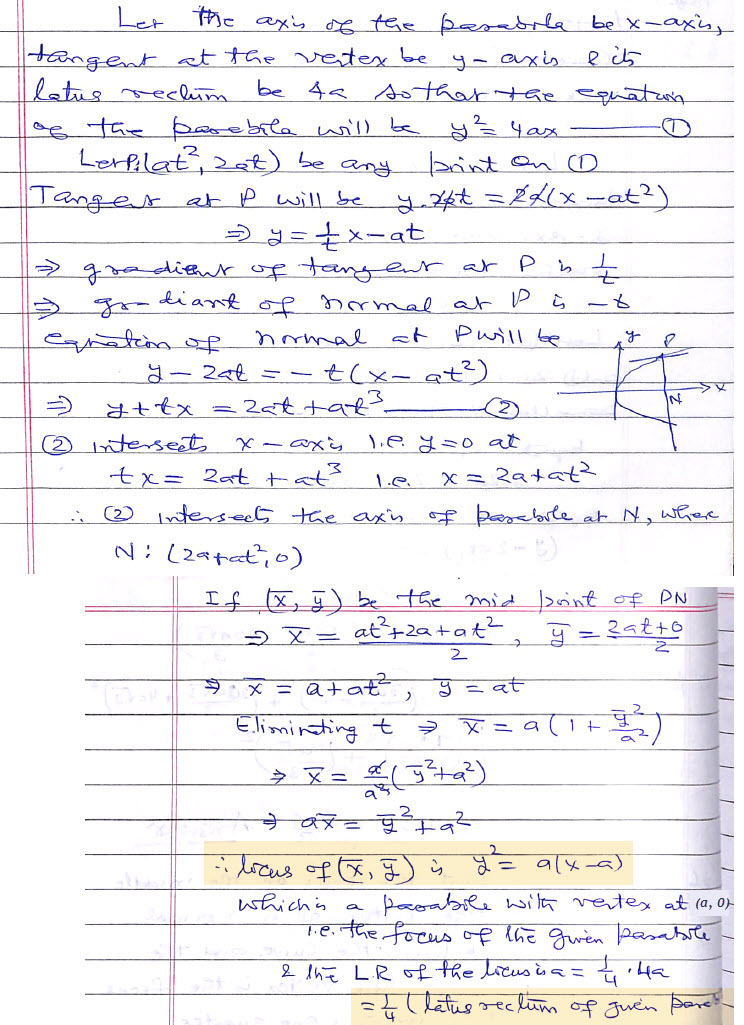 Let the axis of the parabola be x-axis,
tangent at the vertex be y-axis & its
latus rectum be 4a so that the equation
of the parabola will be y² = 4ax —— ①
Let P:(at², 2at) be any point on ①
Tangent at P will be y.2at = 2a(x - at²)
⇒ y = 1/t x - at
⇒ gradient of tangent at P is 1/t
⇒ gradiant of normal at P is -t
equation of normal at P will be
y - 2at = -t(x - at²)
⇒ y + tx = 2at + at³ —— ②
② intersects x-axis i.e. y=0 at
tx = 2at + at³ i.e. x = 2a + at²
∴ ② intersects the axis of parabola at N, where
N: (2a+at², 0)
y P
N x
If (x̄, ȳ) be the mid point of PN
⇒ x̄ = (at²+2a+at²)/2, ȳ = (2at+0)/2
⇒ x̄ = a+at², ȳ = at
Eliminating t ⇒ x̄ = a(1 + ȳ²/a²)
⇒ x̄ = a/a²(ȳ²+a²)
⇒ ax̄ = ȳ²+a²
∴ locus of (x̄, ȳ) is y² = a(x-a)
which is a parabola with vertex at (a, 0)
i.e. the focus of the given parabola
& the LR of the locus is a = 1/4 . 4a
= 1/4 (latus rectum of given